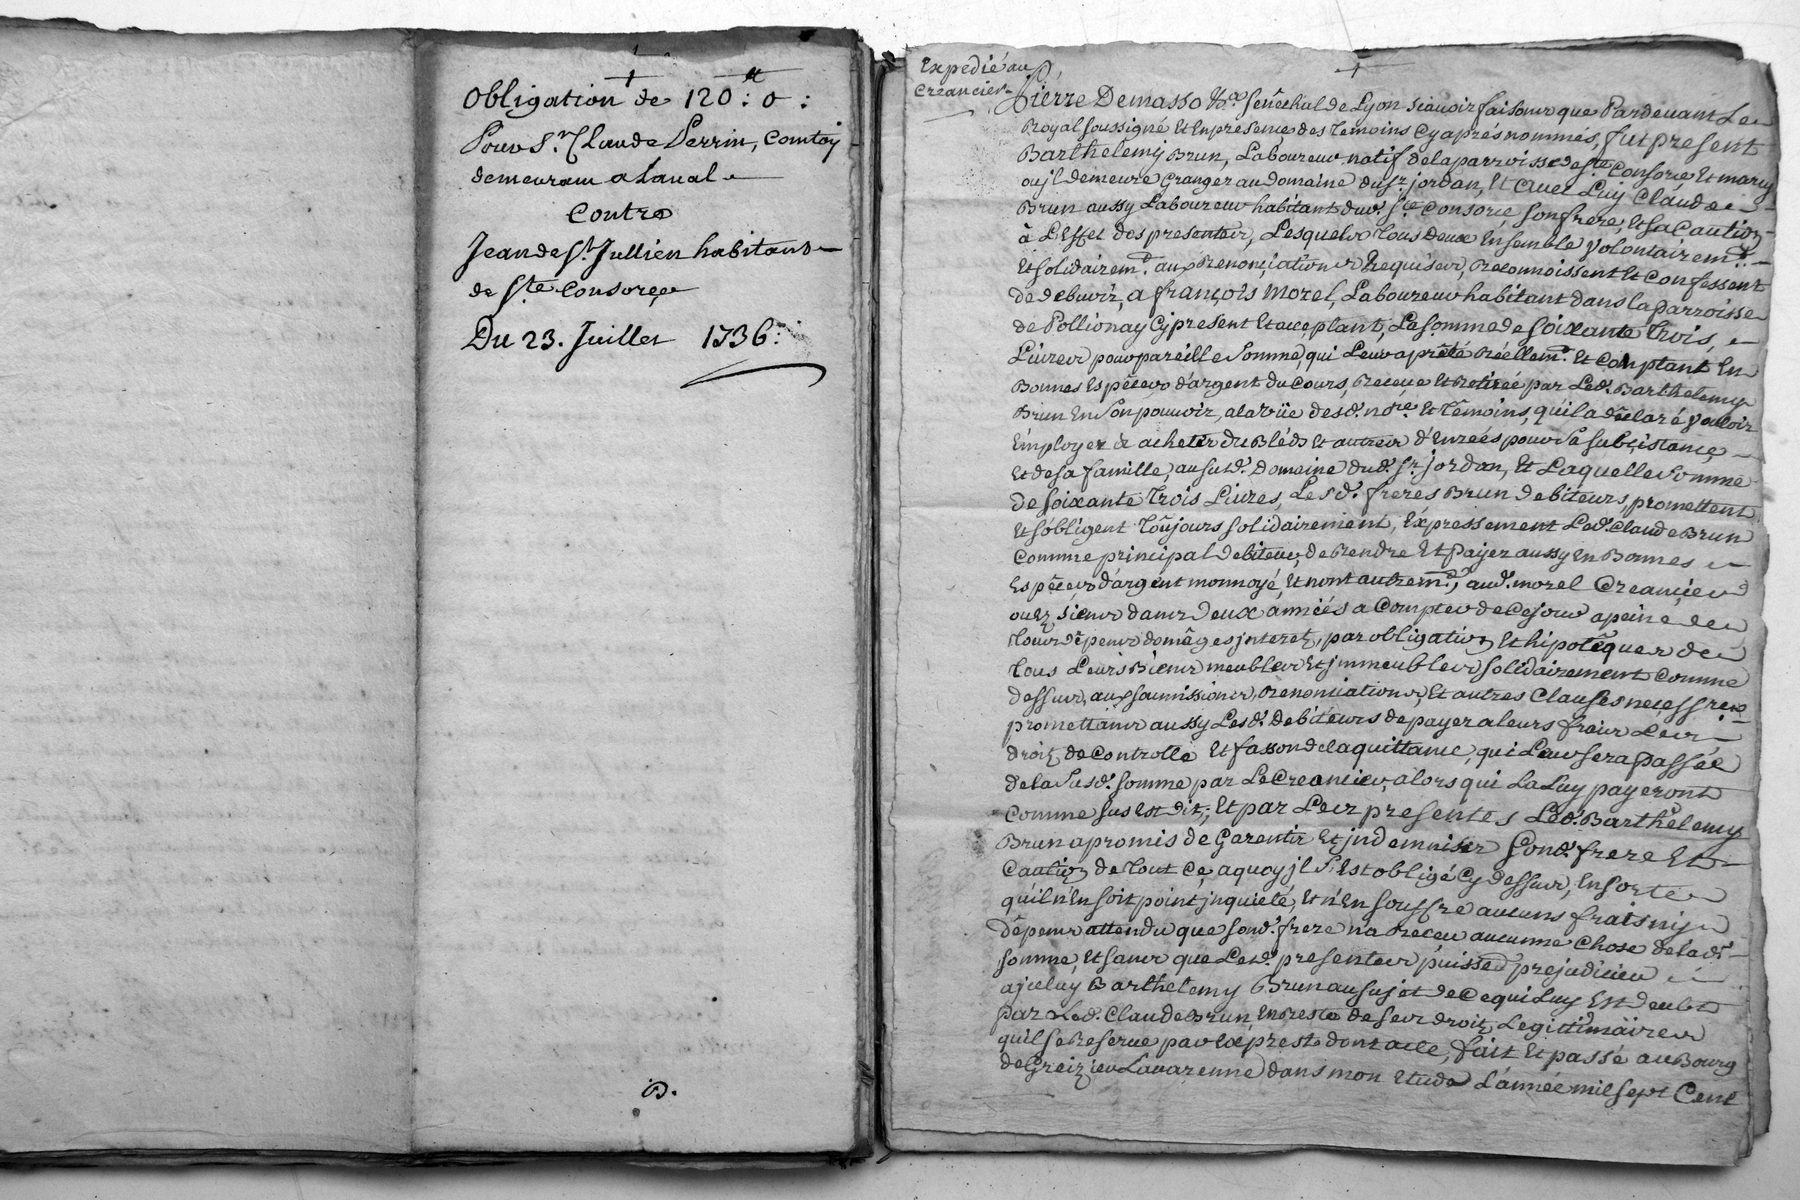 Obligation de 120:# 0:
Pour Sr. Claude Perrin, Comtoy
demeurant a Laval
Contre
Jean de St. Jullien habitant
de Ste Consorce
Du 23. Juillet 1736:
B.
Expedié au
Creancier
Pierre Demasso &ca. Senechal de Lyon scavoir faisons que Pardevant Le
Royal soussigné Et En presence des temoins Cy aprés nommés, fut present
Barthelemy Brun, Laboureur natif de la parroisse de Ste Consorce Et marcy
ou jl demeure Granger au domaine du Sr. jordan, Et avec Luy Claude
Brun aussy Laboureur habitant dud. Ste Consorce son frere, Et sa Caution
à L'Effet des presentes, Lesquels tous deux Ensemble volontairemt.
Et solidairemt. aux Renonciations Requises, Reconnoissent Et confessent
de debvoir, a françois morel, Laboureur habitant dans la parroisse
de Pollionay Cy present Et acceptant, La somme de soixante trois
Livres pour pareille somme, qui Leur a preté Réellemt. Et Comptant En
Bonnes Espéces d'argent du cours, Receue Et Retirée par Led. Barthelemy
Brun En son pouvoir, a la vüe desd. nore. Et témoins, qu'il a déclaré vouloir
Employer à acheter du Bléd Et autres d'Enrées pour sa subcistance
Et de sa famille, au susd. domaine dud. Sr. jordan, Et Laquelle somme
de soixante trois Livres, Lesd. freres Brun debiteurs, promettent
Et s'obligent toujours solidairement, Expressement Led. Claude Brun
Comme principal debiteur, de Rendre Et payer aussy En Bonnes
Espéces d'argent monnoyé, Et non autremt., aud. morel Creancier
ou Ez siens dans deux années a Compter de Ce jour a peine de
tous dépens domâges jnterez, par obligation Et hipotéques de
tous Leurs Biens meubles Et jmmeubles solidairement comme
dessus, aux soumissions, Renonciations, Et autres Clauses necessres
promettans aussy Lesd. debiteurs de payer a leurs frais Les
droiz de Controlle Et fasson de la quittance, qui Leur sera passée
de la susd. somme par Le Creancier, alors qui La Luy payeront
Comme sus Est dit; Et par Les presentes Led. Barthélemy
Brun a promis de Garentir Et jndemniser sond. frere Et
Caution de tout Ce, a quoy jl s'Est obligé Cy dessus, En sorte
qu'il n'En soit point jnquieté, Et n'En souffre aucuns frais ny
dépens attendu que sond. frere n'a Receu aucunne Chose de lad.
somme, Et sans que Lesd. presentes puisse prejudicier
a jceluy Barthelemy Brun au sujet de Ce qui Luy Est deubt
par Led. Claude Brun, En reste de ses droiz Legitimaires
qu'il se Reserve par Exprest dont acte, fait Et passé au Bourg
de Greizieu Lavarenne dans mon Etude L'année mil sept Cent